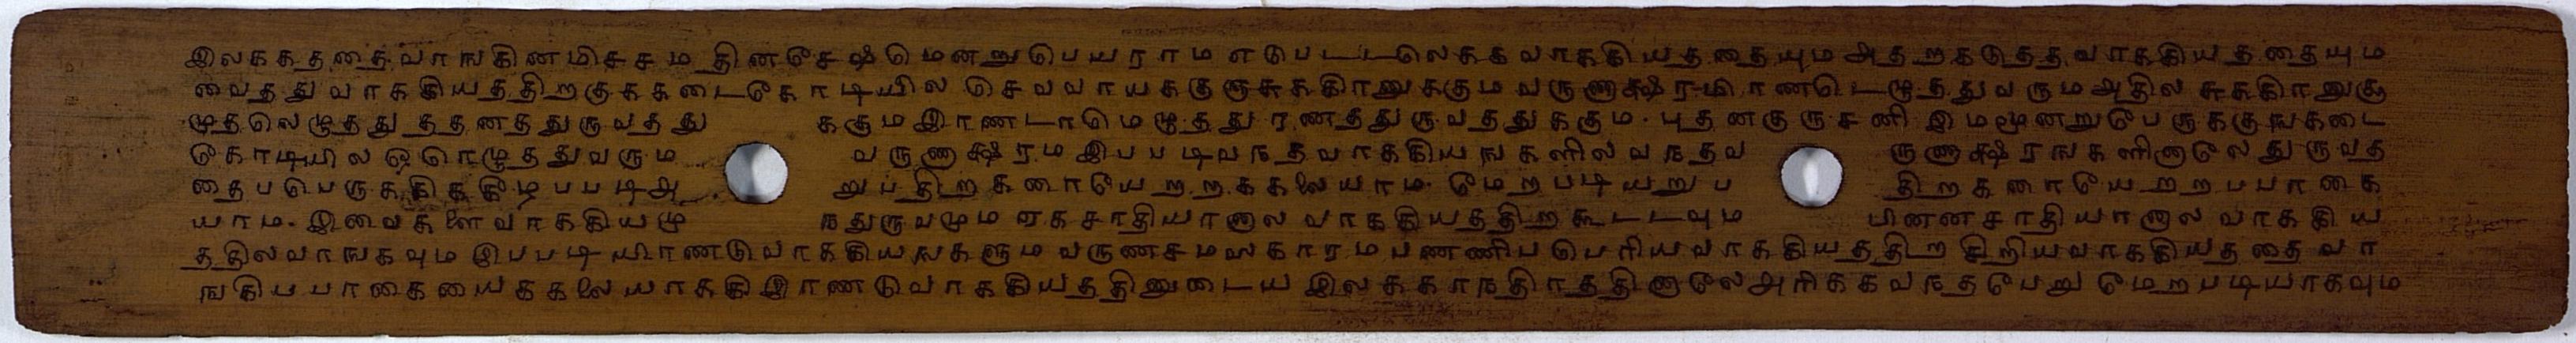 இலககததைவாஙகினமிசசம தினசேஷமெனறுபெயராம எடுபடடலெககவாககியததையும அதறகடுததவாககியததையும
வைததுவாககியததிறகுககடைகோடியில செவவாயககுஞசுககிரானுககும வருணாக்ஷரமிரணடெழுததுவரும அதில சுககிரானுகு
முதலெழுதது ததனததுருவதது ககும இரணடாமெழுதது ரணததுருவததுககும. புதனகுருசனி இமமூனறுபேருககுஙகடை
கோடியில ஒரெழுததுவரும வருணாக்ஷரம இபபடிவநதவாககியஙகளில வநதவ ருணாக்ஷரஙகளினாலேதுருவத
தைபபெருககிககீழபபடிஅ றுபதிறகளையேறறககலையாம. மேறபடியறுப திறகளையேறறபபாகை
யாம. இவைகளைவாககியமு நதுருவமும ஏகசாதியானால வாககியததிறகூடடவும பினனசாதியானால வாககிய
ததிலவாஙகவும இபபடி யிரணடுவாககியஙகளும வருணசமஸகாரம பணணிப பெரியவாககியததிற சிறியவாககியததைவா
ஙகிபபாகையைககலையாககி இரணடுவாககியததினுடைய இலககாநதிரததினாலே அரிககவநதபேறு மேறபடியாகவும